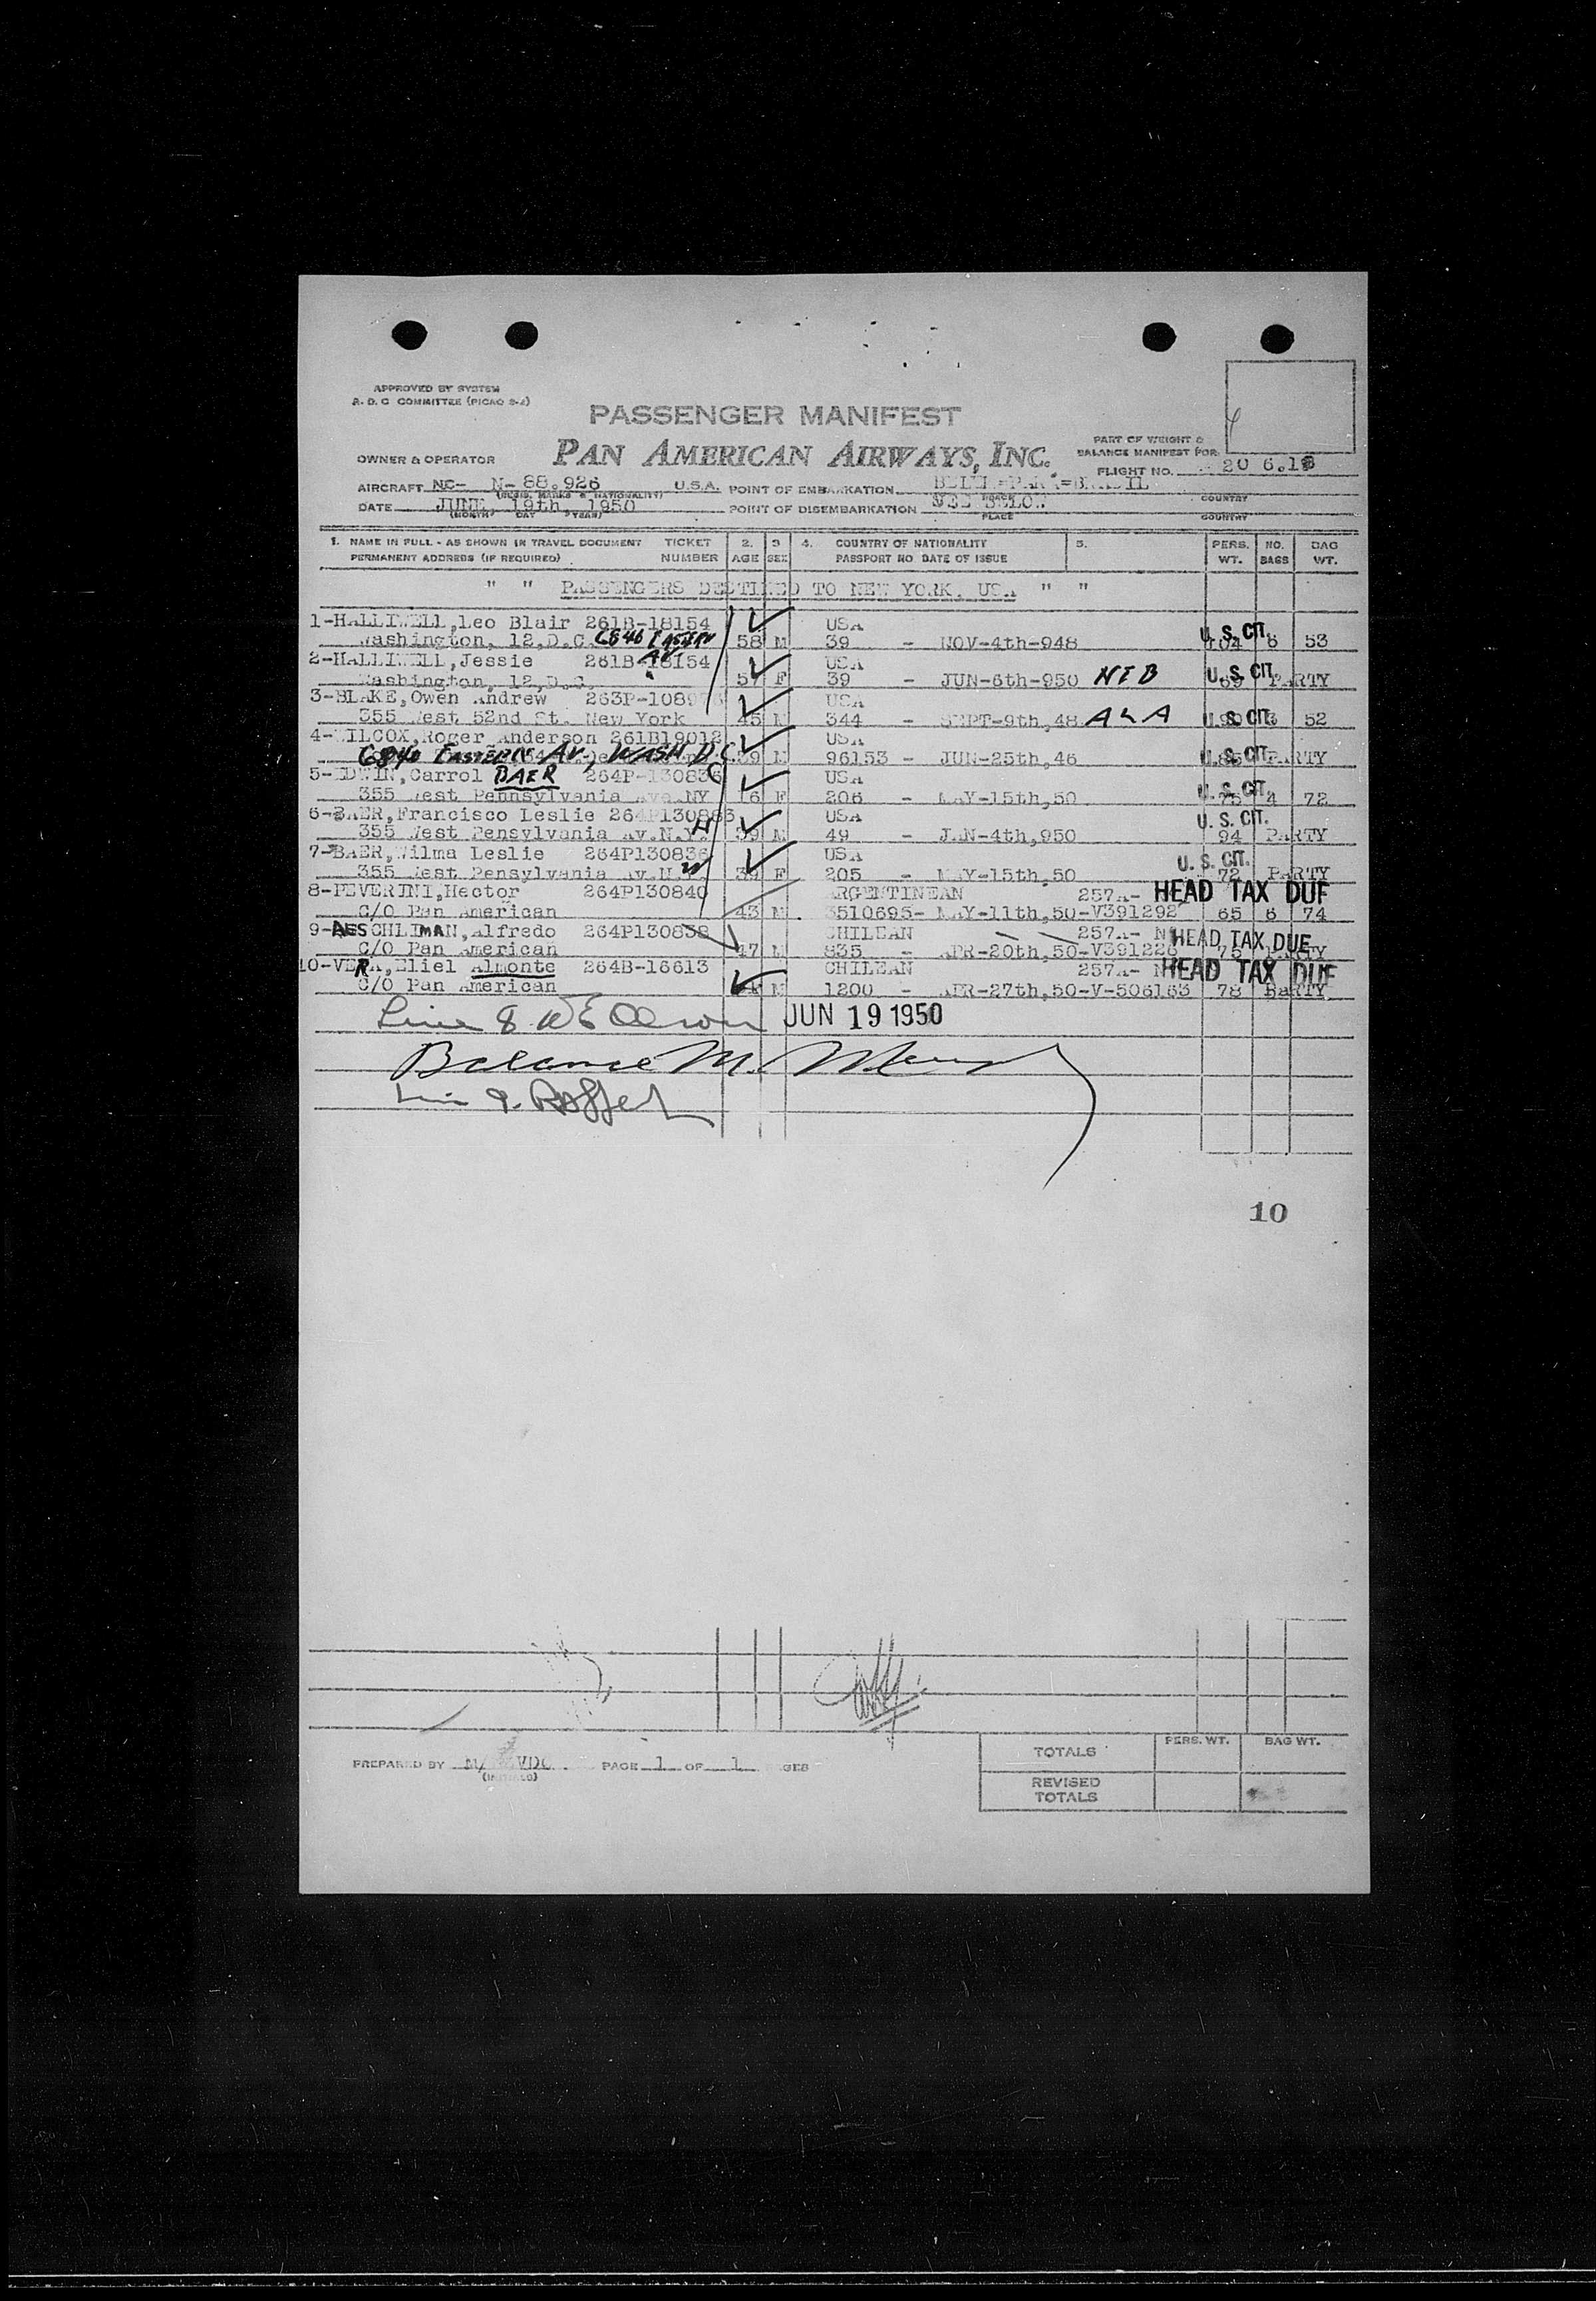 APPROVED BY SYSTEM
R. D. C COMMITTEE (PICAO 2-2)
PASSENGER MANIFEST
PAN AMERICAN AIRWAYS, INC.
OWNER & OPERATOR
PART OF WEIGHT &
BALANCE MANIFEST FOR
FLIGHT NO. 20 6.18
AIRCRAFT NC- N- 88.926 U.S.A. POINT OF EMBARKATION BELEM=PARA=BRASIL
(REGIS. MARKS & NATIONALITY) PLACE COUNTRY
DATE JUNE, 19th, 1950 POINT OF DISEMBARKATION SEE BELOW
(MONTH) DAY (YEAR) PLACE COUNTRY
1. NAME IN FULL - AS SHOWN IN TRAVEL DOCUMENT TICKET 2. 3 4. COUNTRY OF NATIONALITY 5. PERS. NO. BAG
PERMANENT ADDRESS (IF REQUIRED) NUMBER AGE SEX PASSPORT NO DATE OF ISSUE WT. BAGS WT.
" " PASSENGERS DESTINED TO NEW YORK, USA " "
1-HALLIWELL,Leo Blair 261B-18154 USA
Washington, 12,D.C. 6840 EASTERN AV 58 M 39 - NOV-4th-948 U.S. CIT. 104 6 53
2-HALLIWELL,Jessie 261B-18154 USA
Washington, 12,D.C. 57 F 39 - JUN-6th-950 NEB U.S. CIT. 69 PARTY
3-BLAKE,Owen Andrew 263P-108973 USA
355 West 52nd St. New York 45 M 344 - SEPT-9th,48 ALA U.S. CIT. 90 3 52
4-WILCOX,Roger Anderson 261B19012 USA
6840 EASTERN AV., WASH D.C. 39 M 96153 - JUN-25th,46 U.S. CIT. 85 PARTY
5-EDWIN,Carrol BAER 264P-130836 USA
355 West Pennsylvania Ave.NY 16 F 206 - MAY-15th,50 U.S. CIT. 75 4 72
6-BAER,Francisco Leslie 264P130863 USA
355 West Pensylvania Av.N.Y. 39 M 49 - JAN-4th,950 U. S. CIT. 94 PARTY
7-BAER,Wilma Leslie 264P130836 USA
355 West Pensylvania Av.N.Y. 39 F 205 - MAY-15th,50 U. S. CIT. 72 PARTY
8-PEVERINI,Hector 264P130840 ARGENTINEAN 257A- HEAD TAX DUE
C/O Pan American 43 M 3510695- MAY-11th,50-V391292 65 6 74
9-AESCHLIMAN,Alfredo 264P130838 CHILEAN 257A- N HEAD TAX DUE
C/O Pan American 47 M 835 - APR-20th,50-V391226 75 PARTY
10-VERA,Eliel Almonte 264B-16613 CHILEAN 257A- N HEAD TAX DUE
C/O Pan American M 1200 - APR-27th,50-V-506163 78 PARTY
Line 8 JUN 19 1950
Balance M.
10
PREPARED BY VDC PAGE 1 OF 1 PAGES
(INITIALS)
PERS. WT. BAG WT.
TOTALS
REVISED
TOTALS